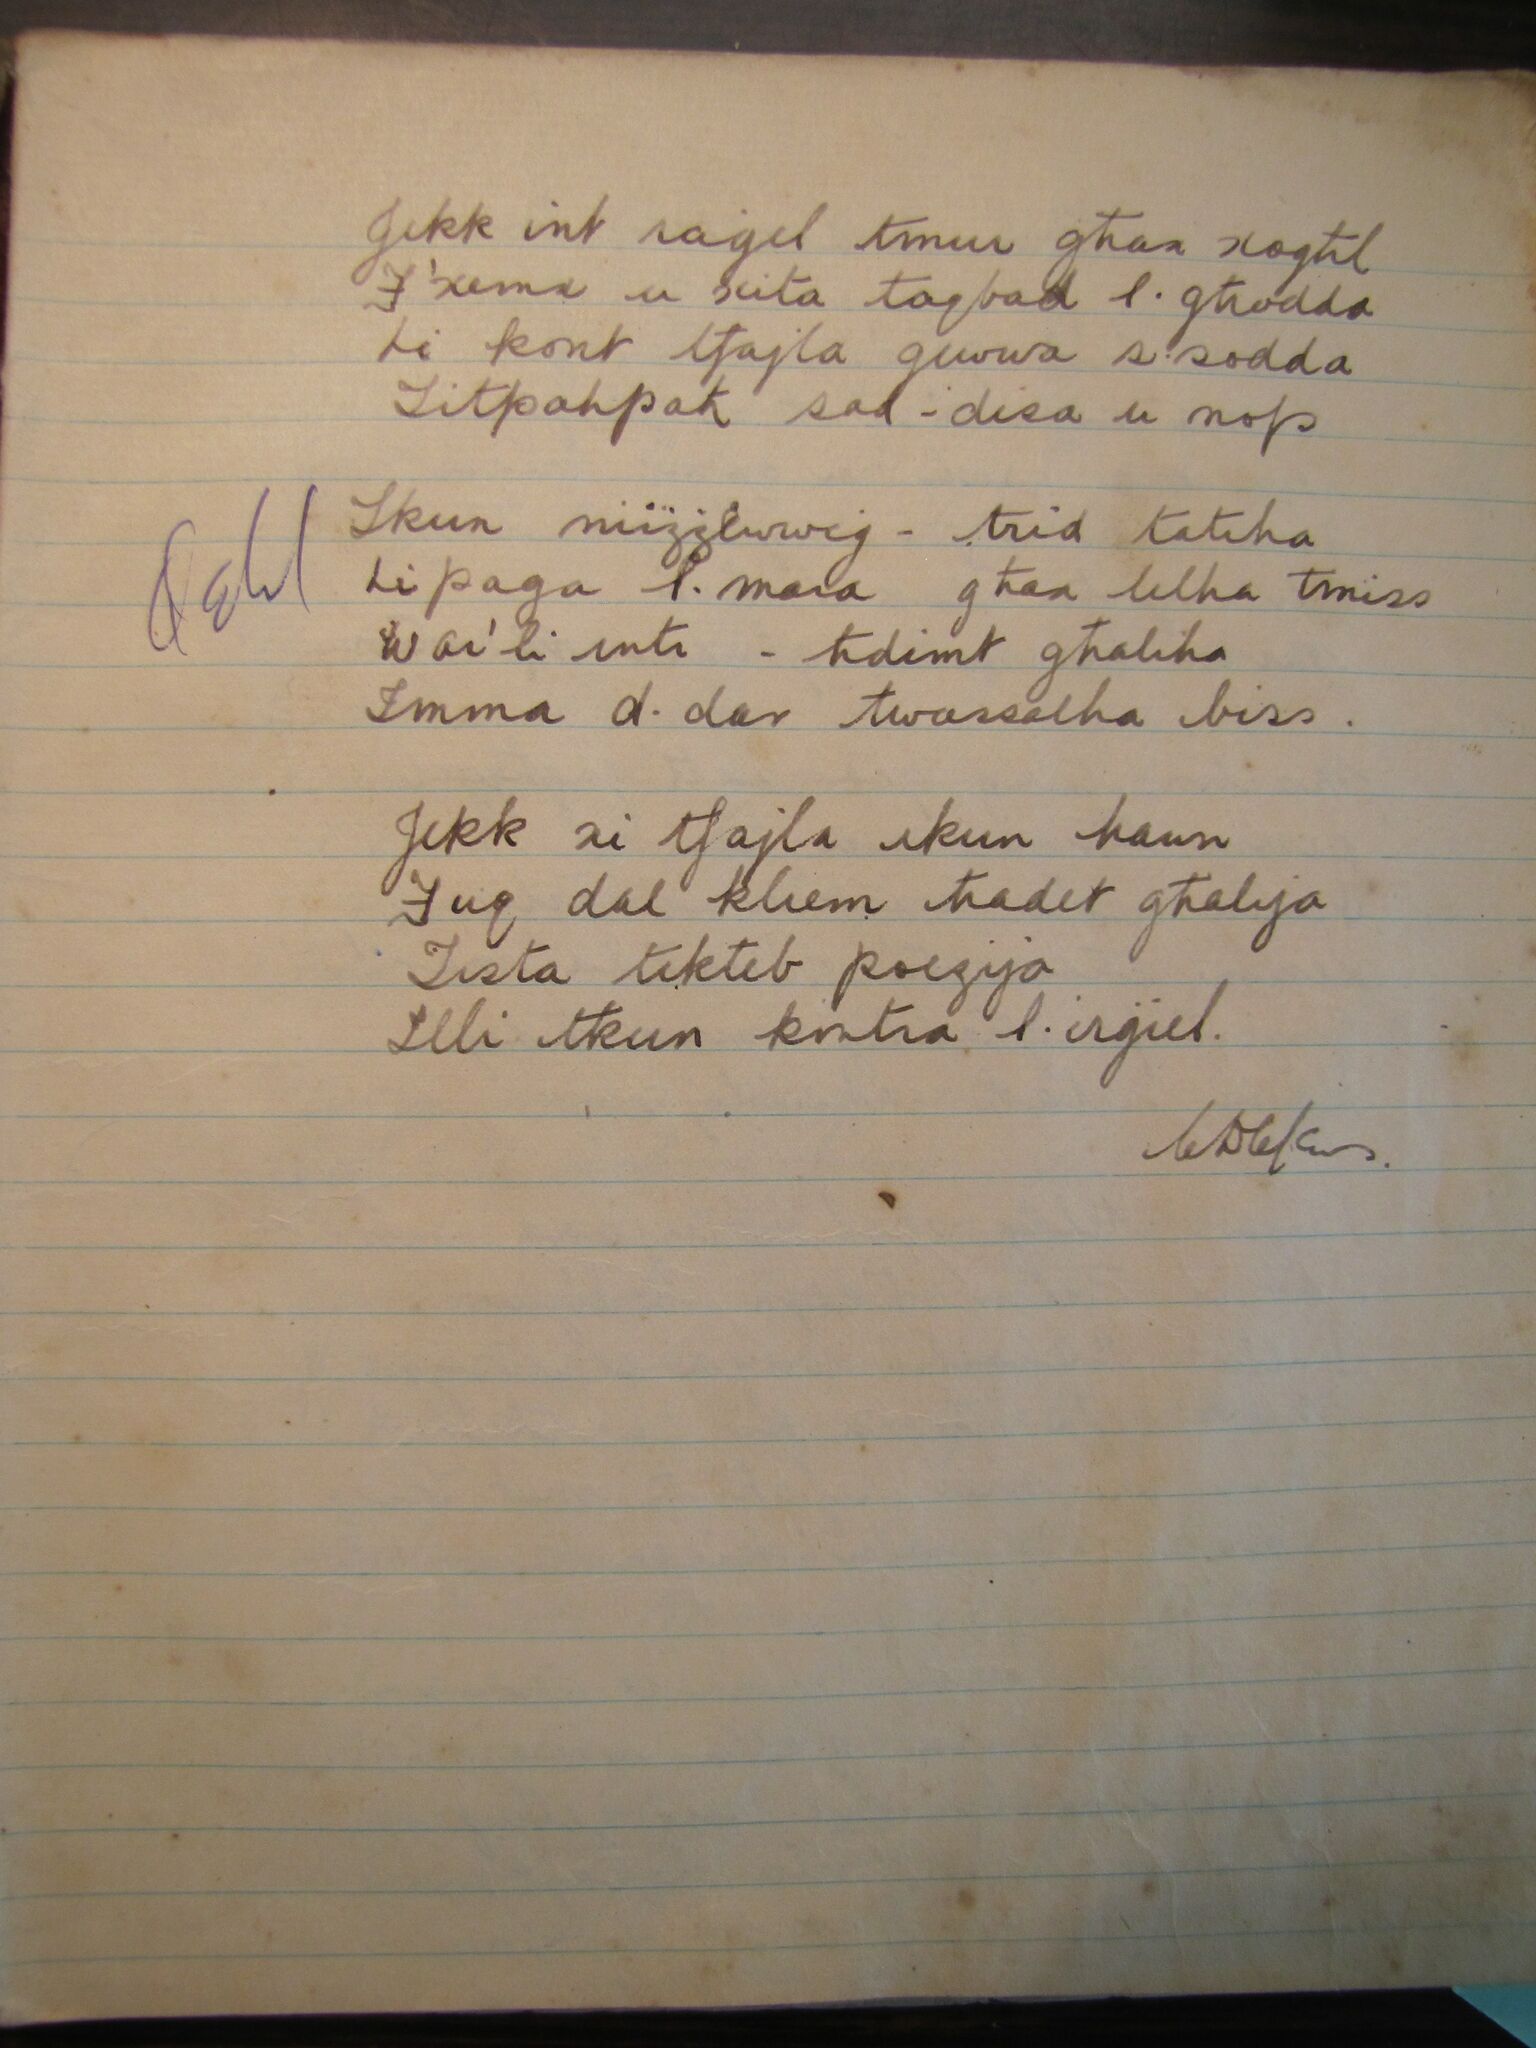 Jekk int raġel tmur għax xogħl
F'xemx u xita taqbad l-għodda
Li kont tfajla ġuwwa s-sodda
Titpaħpaħ sad-disa u nofs
Tkun miżżewweġ - trid tatiha
Li paga l-mara għax lilha tmiss
War'li inti - ħdimt għaliha
Imma d-dar twassalha biss.
Jekk xi tfajla ikun hawn
Fuq dal kliem ħadet għalija
Tista tikteb poeżija
Illi tkun kontra l-irġiel.